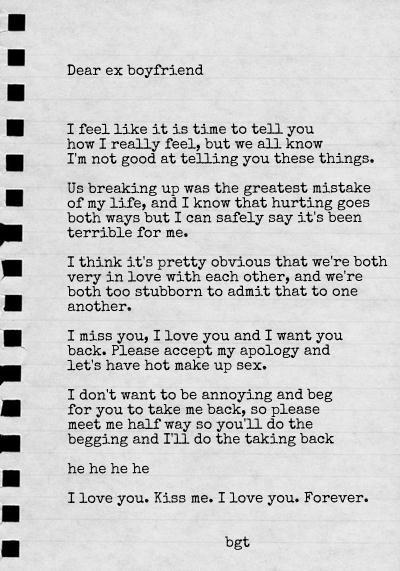 Dear ex boyfriend
I feel like it is time to tell you
how I really feel, but we all know
I'm not good at telling you these things.
Us breaking up was the greatest mistake
of my life, and I know that hurting goes
both ways but I can safely say it's been
terrible for me.
I think it's pretty obvious that we're both
very in love with each other, and we're
both too stubborn to admit that to one
another.
I miss you, I love you and I want you
back. Please accept my apology and
let's have hot make up sex.
I don't want to be annoying and beg
for you to take me back, so please
meet me half way so you'll do the
begging and I'll do the taking back
he he he he
I love you. Kiss me. I love you. Forever.
bgt